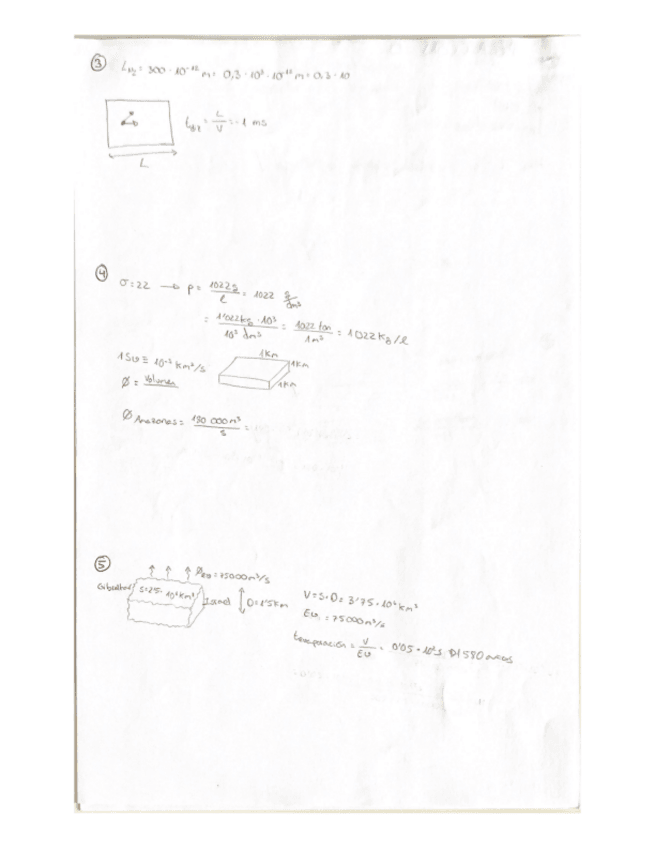 ③ L = 300 · 10⁻¹² m = 0,3 · 10³ · 10⁻¹² m = 0,3 · 10
t = L/V = 1 ms
L
④ σ = 22 → ρ = 1022g/l = 1022 g/dm³
= 1'022kg · 10³/10³ dm³ = 1022 ton/1m³ = 1022kg/l
1km
1 Sv ≡ 10⁻³ km³/s
1km
Ø = Volumen
1km
Ø Amazonas = 180 000 m³/s =
⑤
= 75000 m³/s
Gibraltar
S = 2'5 · 10⁶ km²
Israel
D = 1'5km
V = S · D = 3'75 · 10⁶ km³
Ev = 75000 m³/s
t evaporación = V/Ev = 0'05 · 10 s 1580 años